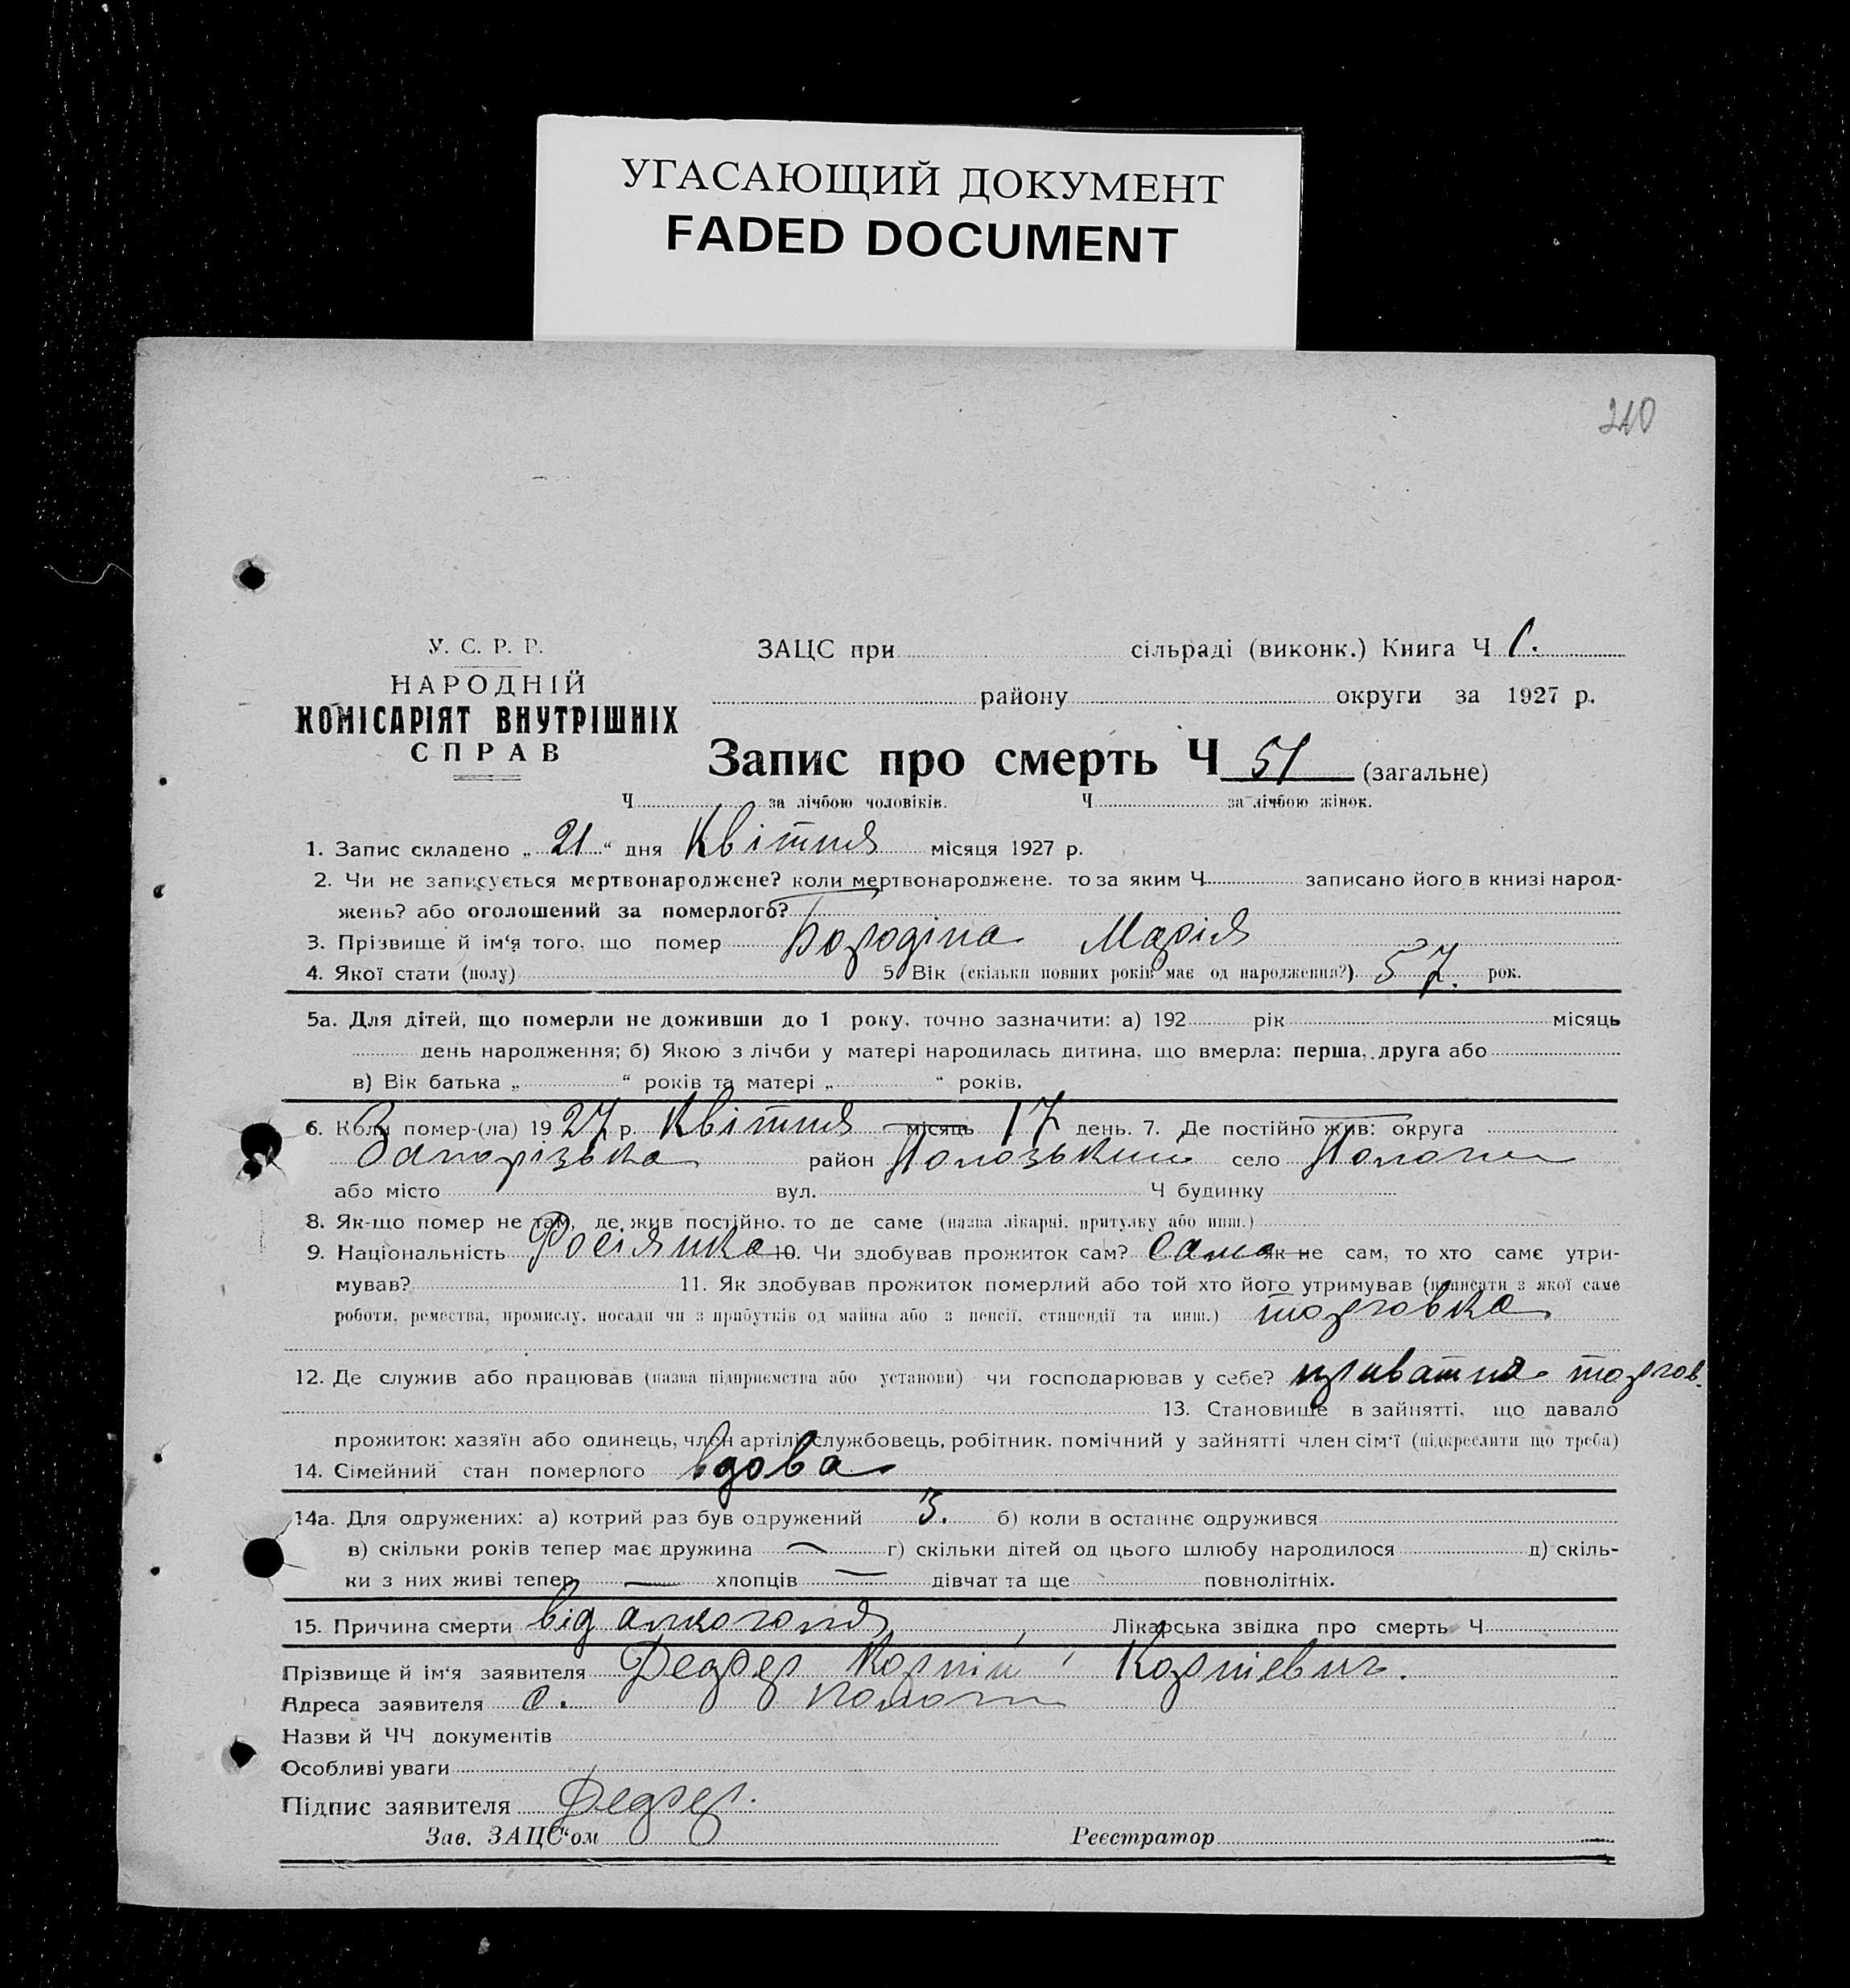 УГАСАЮЩИЙ ДОКУМЕНТ
FADED DOCUMENT
210
У. С. Р. Р.
НАРОДНІЙ
КОМІСАРІЯТ ВНУТРІШНІХ
СПРАВ
ЗАЦС при сільраді (виконк.) Книга Ч
району округи за 1927 р.
Запис про смерть Ч 51 (загальне)
Ч за лічбою чоловіків. Ч за лічбою жінок.
1. Запис складено „21“ дня Квітня місяця 1927 р.
2. Чи не записується мертвонароджене? коли мертвонароджене. то за яким Ч записано його в книзі народ-
жень? або оголошений за померлого?
3. Прізвище й ім‘я того, що помер Бородіна Марія
4. Якої стати (полу) 5 Вік (скільки повних років має од народження?) 57. рок.
5а. Для дітей, що померли не доживши до 1 року, точно зазначити: а) 192 рік місяць
день народження; б) Якою з лічби у матері народилась дитина, що вмерла: перша, друга або
в) Вік батька „ “ років та матері „ “ років.
6. Коли помер-(ла) 1927 р. Квітня місяць 17 день. 7. Де постійно жив: округа
Запорізька район Пологзький село Пологи
або місто вул. Ч будинку
8. Як-що помер не там, де жив постійно, то де саме (назва лікарні, притулку або инш.)
9. Національність Росіянка 10. Чи здобував прожиток сам? Сама як не сам, то хто саме утри-
мував? 11. Як здобував прожиток померлий або той хто його утримував (написати з якої саме
роботи, ремества, промислу, посади чи з прибутків од майна або з пенсії, стипендії та инш.) торговка
12. Де служив або працював (назва підприємства або установи) чи господарював у себе? приватня торгов.
13. Становище в зайнятті, що давало
прожиток: хазяїн або одинець, член артілі, службовець, робітник, помічний у зайнятті член сім‘ї (підкреслити що треба)
14. Сімейний стан померлого вдова
14а. Для одружених: а) котрий раз був одружений 3. б) коли в останнє одружився
в) скільки років тепер має дружина — г) скільки дітей од цього шлюбу народилося д) скіль-
ки з них живі тепер — хлопців — дівчат та ще повнолітніх.
15. Причина смерти від алкоголя, Лікарська звідка про смерть Ч
Прізвище й ім‘я заявителя Корній Корнієвич.
Адреса заявителя с. Пологи
Назви й ЧЧ документів
Особливі уваги
Підпис заявителя
Зав. ЗАЦС‘ом Реєстратор